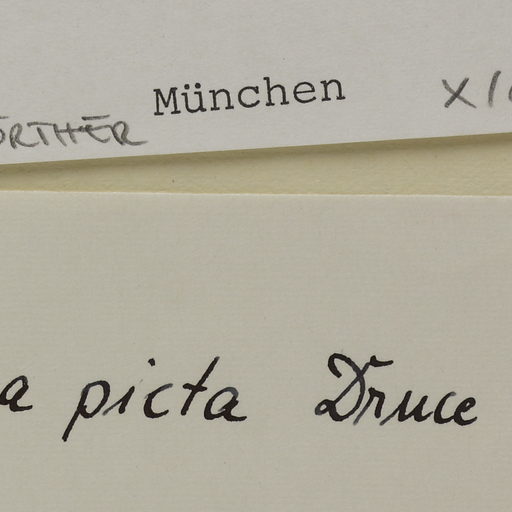 München
ÖRTHER X/
a picta Druce